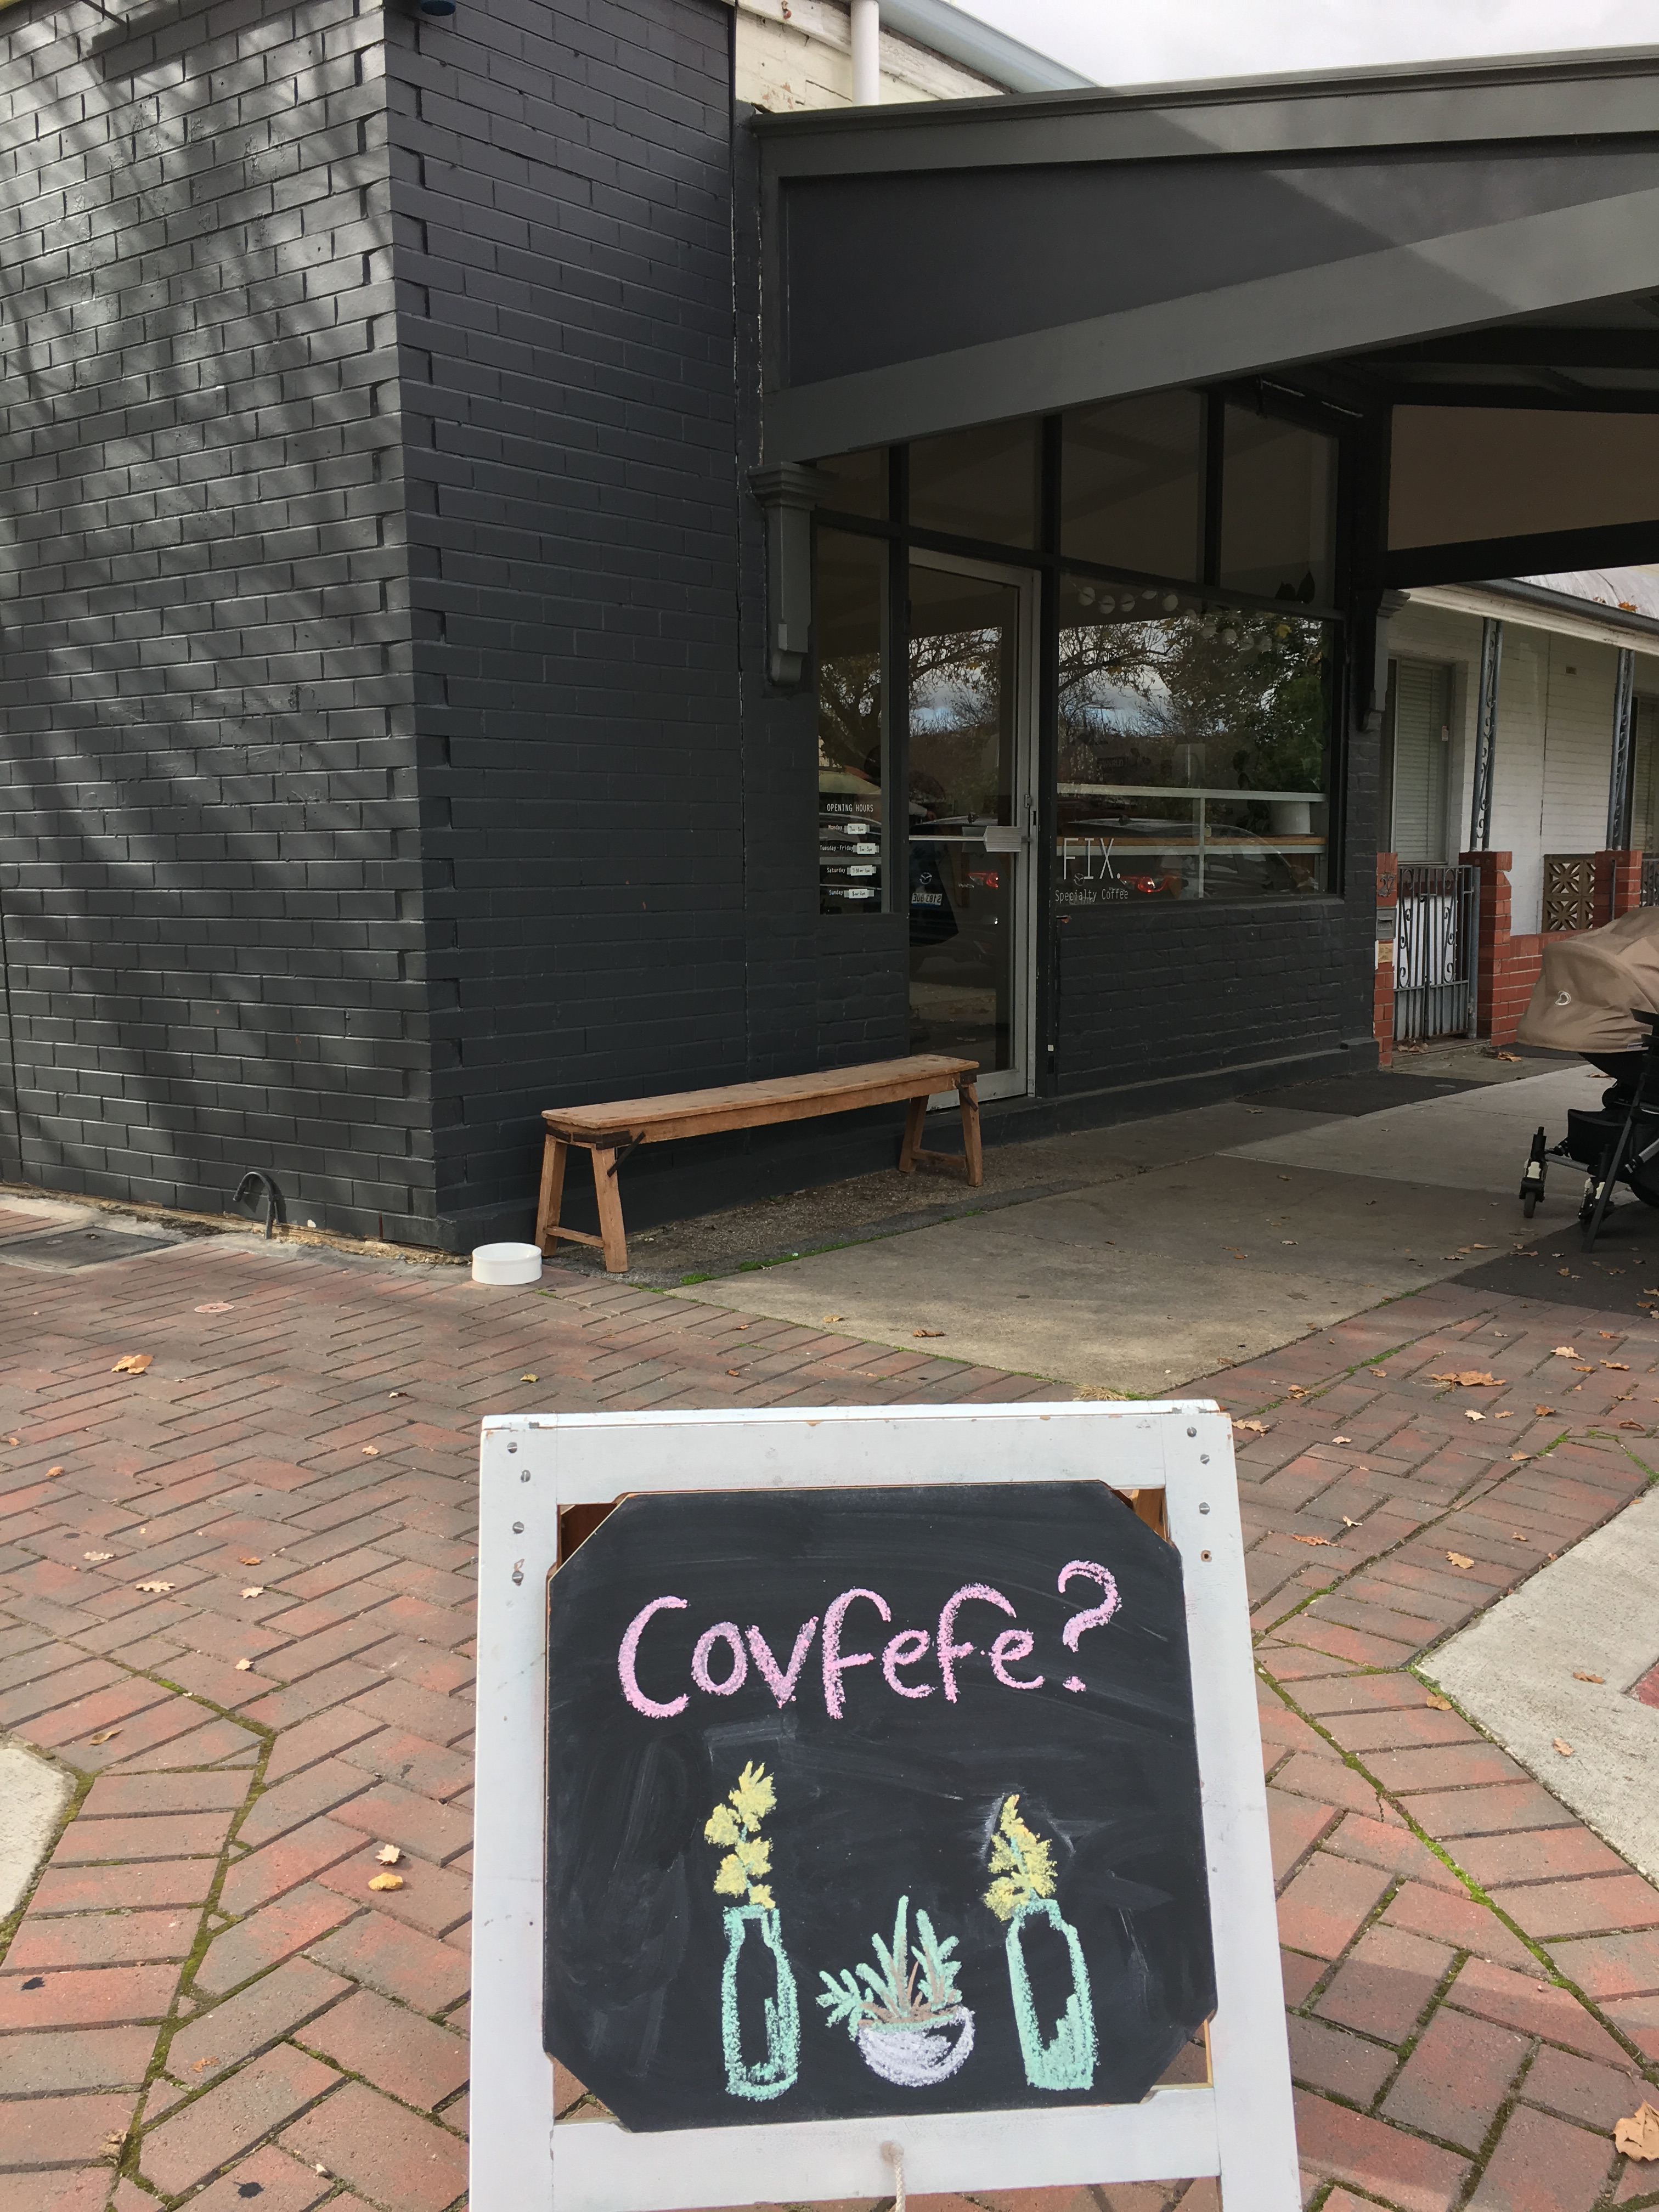 OPENING HOURS
Monday
Tuesday-Friday
Saturday
Sunday
FIX.
Specialty Coffee
Covfefe?